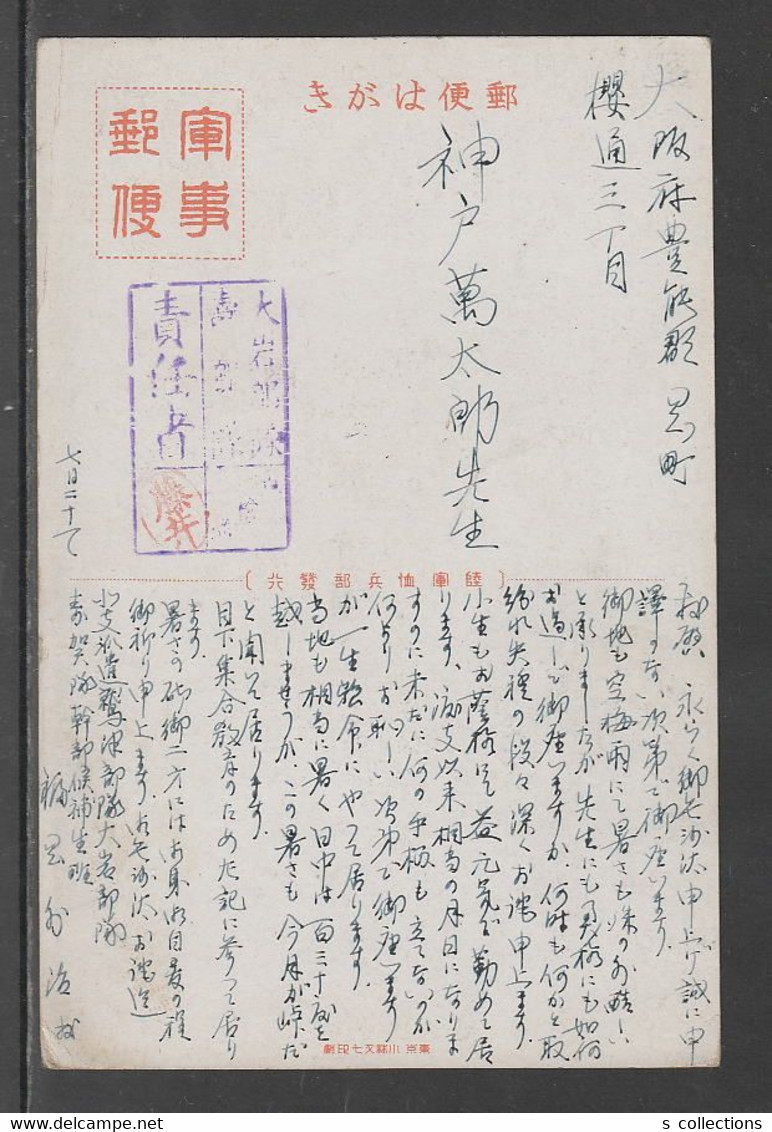 郵便はがき
軍事
郵便
大阪府豊能郡
櫻通三丁目
神戸萬太郎先生
大岩部隊
責任者
藤井
(陸軍恤兵部發行)
拝啓 永らく御無沙汰申上げ誠に申
譯のない次第で御座います。
御地も空梅雨にて暑さも殊の外酷しい
と承りましたが先生にも其後如何
お過しで御座いますか、何時も何かと取
紛れ失禮の段々深くお詫申上ます。
小生もお蔭様にて益々元気で勤めて居
ります、渡支以来相当の月日になりま
すのに未だに何の手柄も立てないのが
何よりお恥しい次第で御座います
が一生懸命にやつて居ります。
当地も相当に暑く日中は百三十度を
越しませうが、この暑さも今月が峠だ
と聞いて居ります。
目下集合教育のため左記に参つて居り
ます。
暑さの砌御二方には御身御自愛の程
御祈り申上ます お無沙汰お詫迄
北支派遣鷲津部隊大岩部隊
幹部候補生班
東京 小林又七印刷
s collections